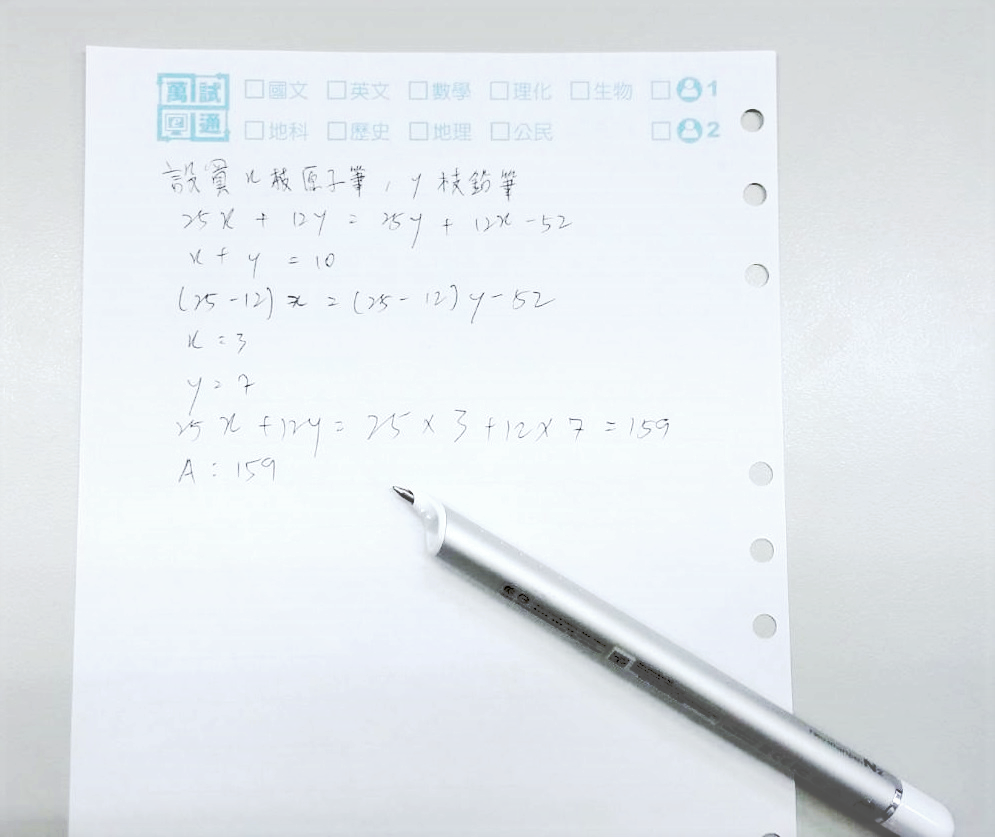 萬試e通 □國文 □英文 □數學 □理化 □生物 □ 1
□地科 □歷史 □地理 □公民 □ 2
設買x枝原子筆,y枝鉛筆
25x + 12y = 25y + 12x - 52
x + y = 10
(25-12)x = (25-12)y-52
x = 3
y = 7
25x + 12y = 25 × 3 + 12 × 7 = 159
A : 159